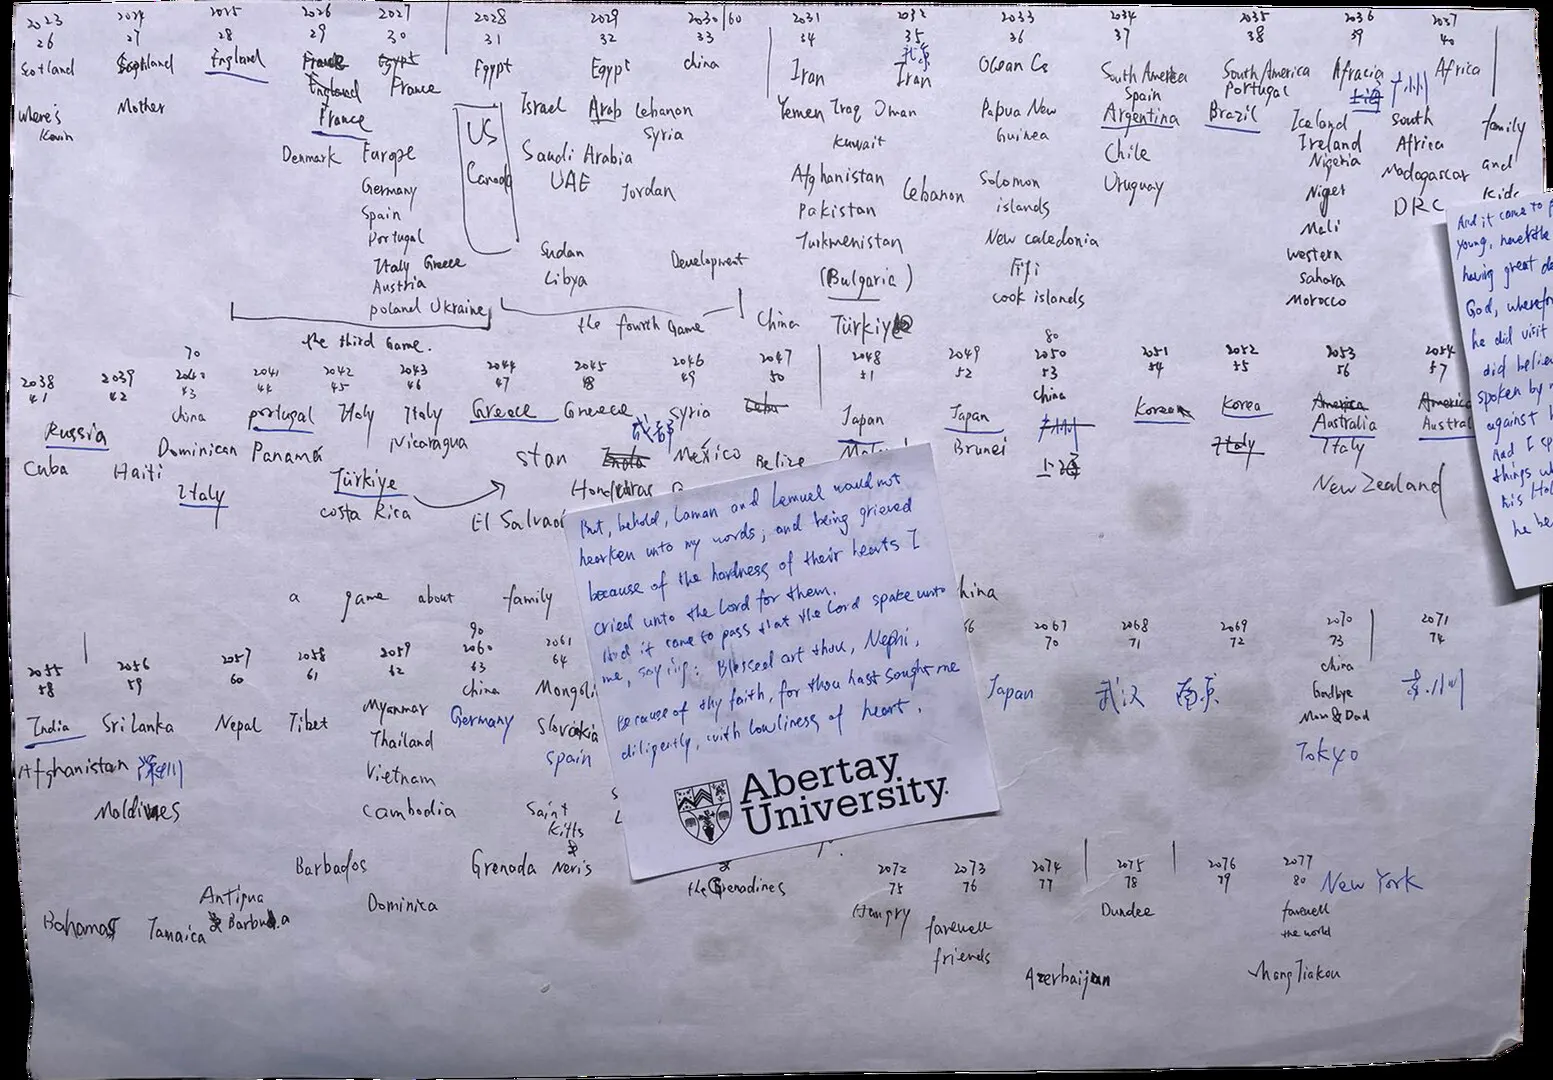 2023 2024 2025 2026 2027 2028 2029 2030/60 2031 2032 2033 2034 2035 2036 2037
26 27 28 29 30 31 32 33 34 35 36 37 38 39 40
Scotland Scotland England France Egypt Egypt Egypt China Iran 北京 Iran Ocean South America South America Africa
England France Spain Portugal 上海 广州
where's Kevin Mother France US Israel Arab Lebanon Yemen Iraq Oman Papua New Guinea Argentina Brazil Iceland South Africa family
Denmark Europe Canada Syria Kuwait Chile Ireland Madagascar and
Germany Saudi Arabia Afghanistan Lebanon Solomon islands Uruguay Nigeria DRC kids
Spain UAE Jordan Pakistan Niger
Portugal Turkmenistan New Caledonia Mali
Italy Greece Sudan Development (Bulgaria) Fiji western
Austria Libya cook islands Sahara
poland Ukraine China Türkiye Morocco
the third Game. the fourth Game
70 80
2038 2039 2040 2041 2042 2043 2044 2045 2046 2047 2048 2049 2050 2051 2052 2053 2054
41 42 43 44 45 46 47 48 49 50 51 52 53 54 55 56 57
Russia China portugal Italy Italy Greece Greece Syria Cuba Japan Japan China Korea Korea America America
成都 广州 Australia
Cuba Haiti Dominican Panama Nicaragua stan India México Belize Brunei 上海 Italy Italy
Italy Türkiye Honduras New Zealand
costa Rica El Salvador
a game about family China
90
2055 2056 2057 2058 2059 2060 2061 2067 2068 2069 2070 2071
58 59 60 61 62 63 64 70 71 72 73 74
India Sri Lanka Nepal Tibet Myanmar China Japan 武汉 南京 China
Germany Goodbye
Afghanistan 深圳 Thailand Slovakia Mom & Dad
Maldives Vietnam Spain Tokyo
Cambodia Saint
Kitts
&
Barbados Grenada Nevis
Antigua Dominica the Grenadines
Bahamas Jamaica & Barbuda
2072 2073 2074 2075 2076 2077
75 76 77 78 79 80 New York
farewell Dundee farewell
friends the world
Azerbaijan ZhangJiakou
But, behold, Laman and Lemuel would not
hearken unto my words; and being grieved
because of the hardness of their hearts I
cried unto the Lord for them.
And it came to pass that the Lord spake unto
me, saying: Blessed art thou, Nephi,
because of thy faith, for thou hast sought me
diligently, with lowliness of heart.
Abertay
University
And it came to
young,
having great
God,
he did visit
did
spoken by
against
And I
things
his
he